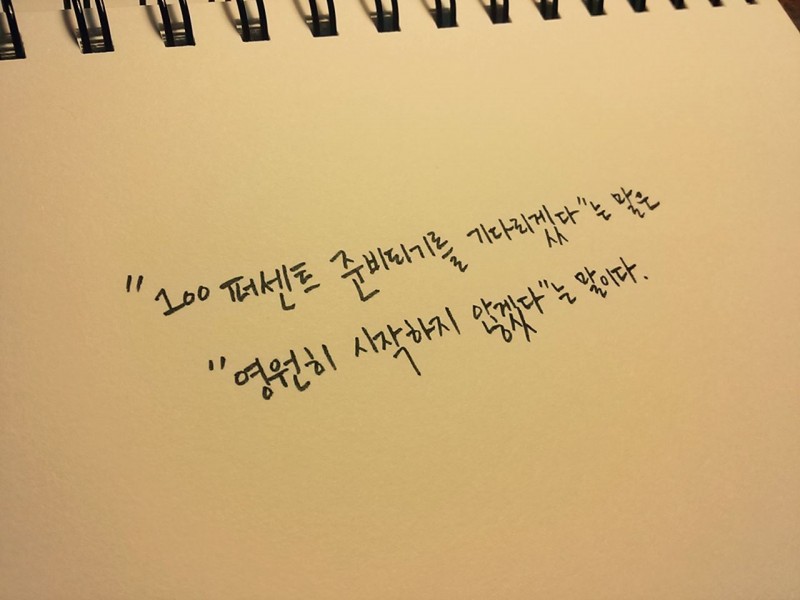 "100 퍼센트 준비되기를 기다리겠다"는 말은
"영원히 시작하지 않겠다"는 말이다.